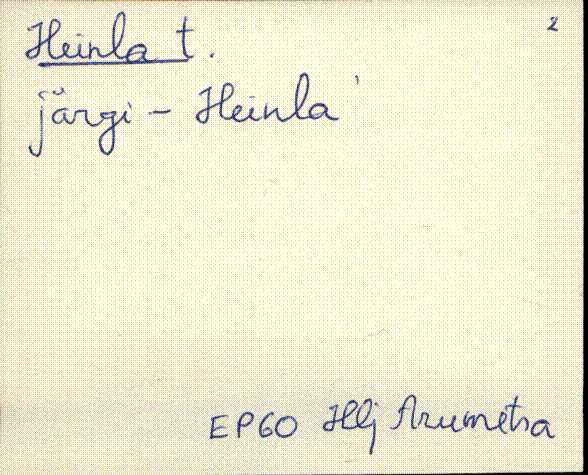 2
Heinla t.
järgi - Heinla
EPGO Hlj Arumetsa